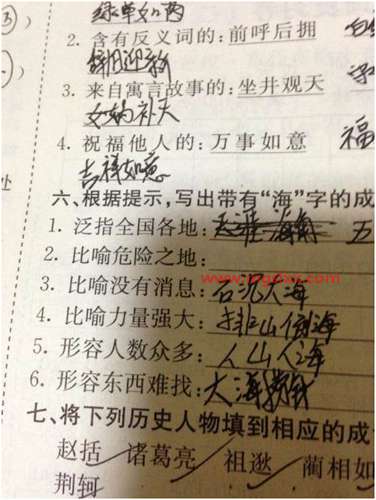 绿草如茵
2. 含有反义词的: 前呼后拥
辞旧迎新
3. 来自寓言故事的: 坐井观天
女娲补天
4. 祝福他人的: 万事如意 福
吉祥如意
处
六、根据提示,写出带有“海”字的成
1. 泛指全国各地: 天涯海角 五
2. 比喻危险之地:
3. 比喻没有消息: 石沉大海
4. 比喻力量强大: 排山倒海
5. 形容人数众多: 人山人海
6. 形容东西难找: 大海捞针
七、将下列历史人物填到相应的成
赵括 诸葛亮 祖逖 蔺相如
荆轲